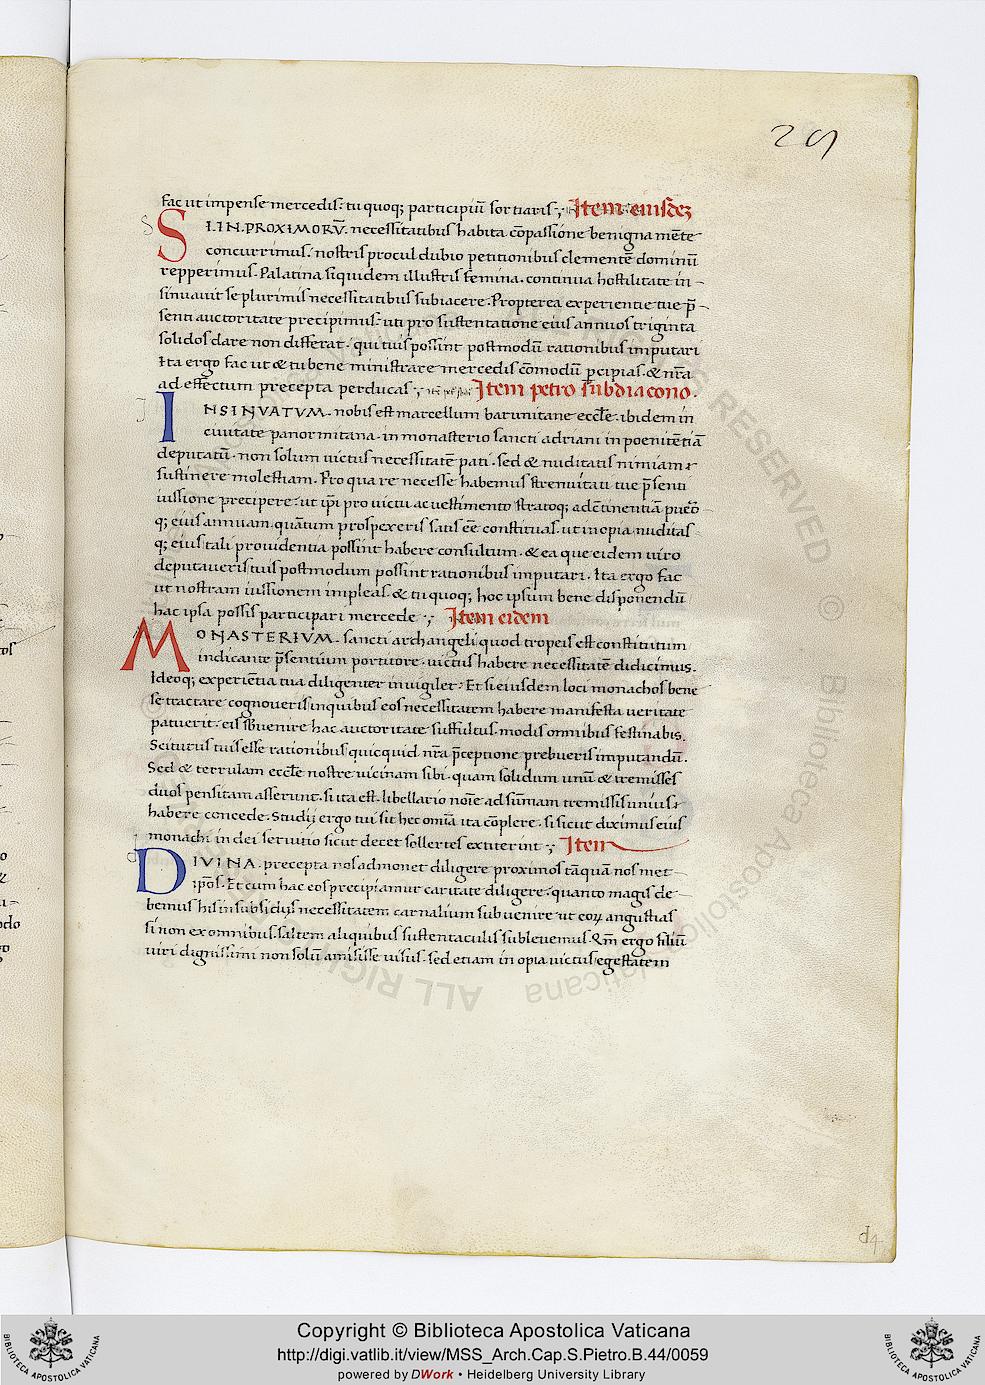 29
fac ut impense mercedis. tu quoq; participiū sortiaris ; Item eiusdez
S I.IN.PROXIMORV̄. necessitatibus habita cōpassione benigna mēte
concurrimus. nostris procul dubio petitionibus clementē dominū
repperimus. Palatina siquidem illustris femina. continua hostilitate in-
sinuauit se plurimis necessitatibus subiacere. Propterea experientie tue p̄-
senti auctoritate precipimus. uti pro sustentatione eius annuos triginta
solidos dare non differat. qui tuis possint postmodū rationibus imputari
Ita ergo fac ut & tu bene ministrare mercedis cōmodū p̄cipias. & nr̄a
ad effectum precepta perducas ; Item petro subdiacono.
I NSINVATVM. nobis est marcellum barunitane eccl̄e. ibidem in
ciuitate panormitana. in monasterio sancti adriani in poenitētiā
deputatū. non solum uictus necessitatē pati. sed & nuditatis nimiam
sustinere molestiam. Pro qua re necesse habemus strenuitati tue p̄senti
iussione precipere. ut ip̄i pro uictu ac uestimento stratoq; ad cōtinentiā pueō
q; eius annuam. quātum prospexeris satis eē constituas. ut inopia nuditas
q; eius tali prouidentia possint habere consultum. & ea que eidem uiro
deputaueris tuis postmodum possint rationibus imputari. Ita ergo fac
ut nostram iussionem impleas. & tu quoq; hoc ipsum bene disponendū
hac ipsa possis participari mercede ; Item eidem
M ONASTERIVM. sancti archangeli quod tropeis est constitutum
indicante p̄sentium portitore. uictus habere necessitatē didicimus.
Ideoq; experiētia tua diligenter inuigilet. Et si eiusdem loci monachos bene
se tractare cognoueris inquibus eos necessitatem habere manifesta ueritate
patuerit. eis sbuenire hac auctoritate suffultus. modis omnibus festinabis.
Sciturus tuis esse rationibus quicquid nr̄a p̄ceptione prebueris imputandū.
Sed & terrulam eccl̄e nostre uicinam sibi. quam solidum unū & tremisses
duos pensitam asserunt. si ita est. libellario noīe ad sūmam tremissis unius
habere concede. Studij ergo tui sit hec omīa ita cōplere. si sicut diximus eius
monachi in dei seruitio sicut decet sollertes extiterint ; Item
D IVINA. precepta nos admonet diligere proximos tāquā nos met
ip̄os. Et cum hac eos precipiamur caritate diligere. quanto magis de-
bemus his in subsidijs necessitatem carnalium subuenire ut eoꝝ angustias
si non ex omnibus. saltem aliquibus sustentaculis subleuemus. Qm̄ ergo filiū
uiri dignissimi non solū amisisse uisus. sed etiam in opia uictus egestatem
d4
Copyright © Biblioteca Apostolica Vaticana
http://digi.vatlib.it/view/MSS_Arch.Cap.S.Pietro.B.44/0059
powered by DWork • Heidelberg University Library